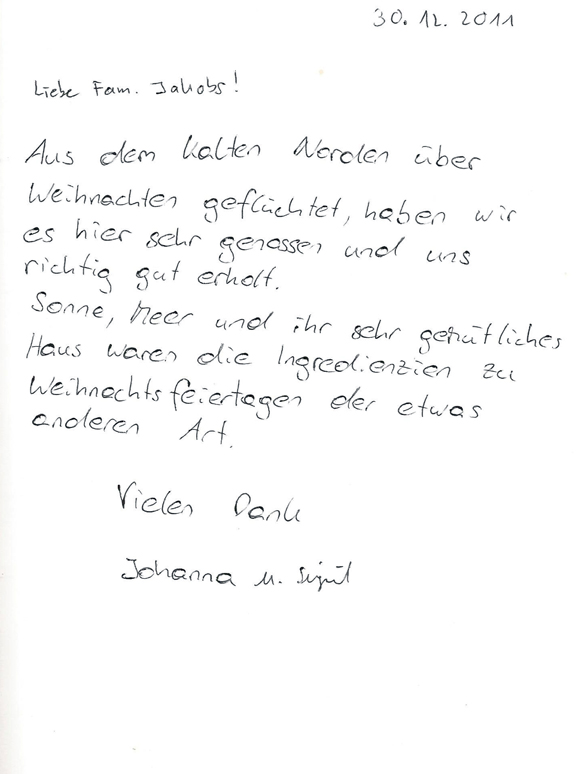 30. 12. 2011
Liebe Fam. Jakobs!
Aus dem kalten Norden über
Weihnachten geflüchtet, haben wir
es hier sehr genossen und uns
richtig gut erholt.
Sonne, Meer und ihr sehr gemütliches
Haus waren die Ingredienzien zu
Weihnachtsfeiertagen der etwas
anderen Art.
Vielen Dank
Johanna u.